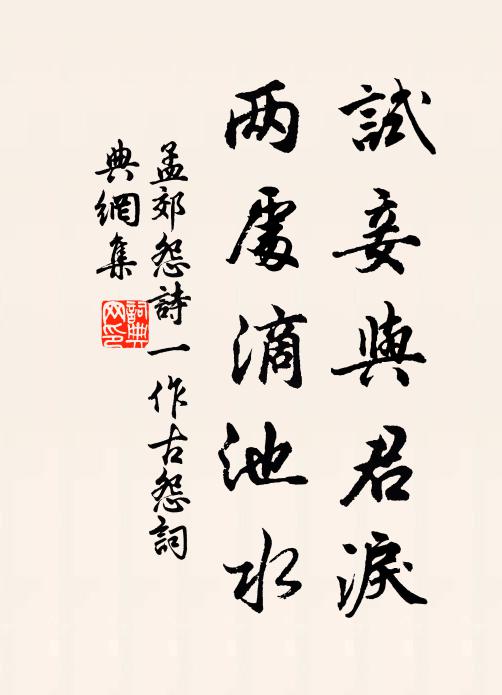 試妾與君淚
兩處滴池水
孟郊怨詩一作古怨詞
典網集
詞典
网印